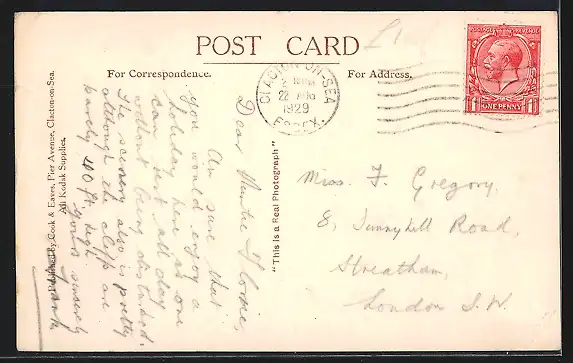 POST CARD
For Correspondence.
For Address.
£1
CLACTON-ON-SEA
22 AUG
1929
ESSEX.
POSTAGE REVENUE
ONE PENNY
Dear Auntie Florrie,
Am sure that
you would enjoy a
holiday here as one
can rest all day
without being disturbed.
The scenery also is pretty
although the cliffs are
barely 40 ft. high.
Yours sincerely
Frank
"This is a Real Photograph"
Published by Cook & Eaves, Pier Avenue, Clacton-on-Sea.
All Kodak Supplies.
Miss. F. Gregory.
8, Sunnyhill Road,
Streatham,
London S.W.